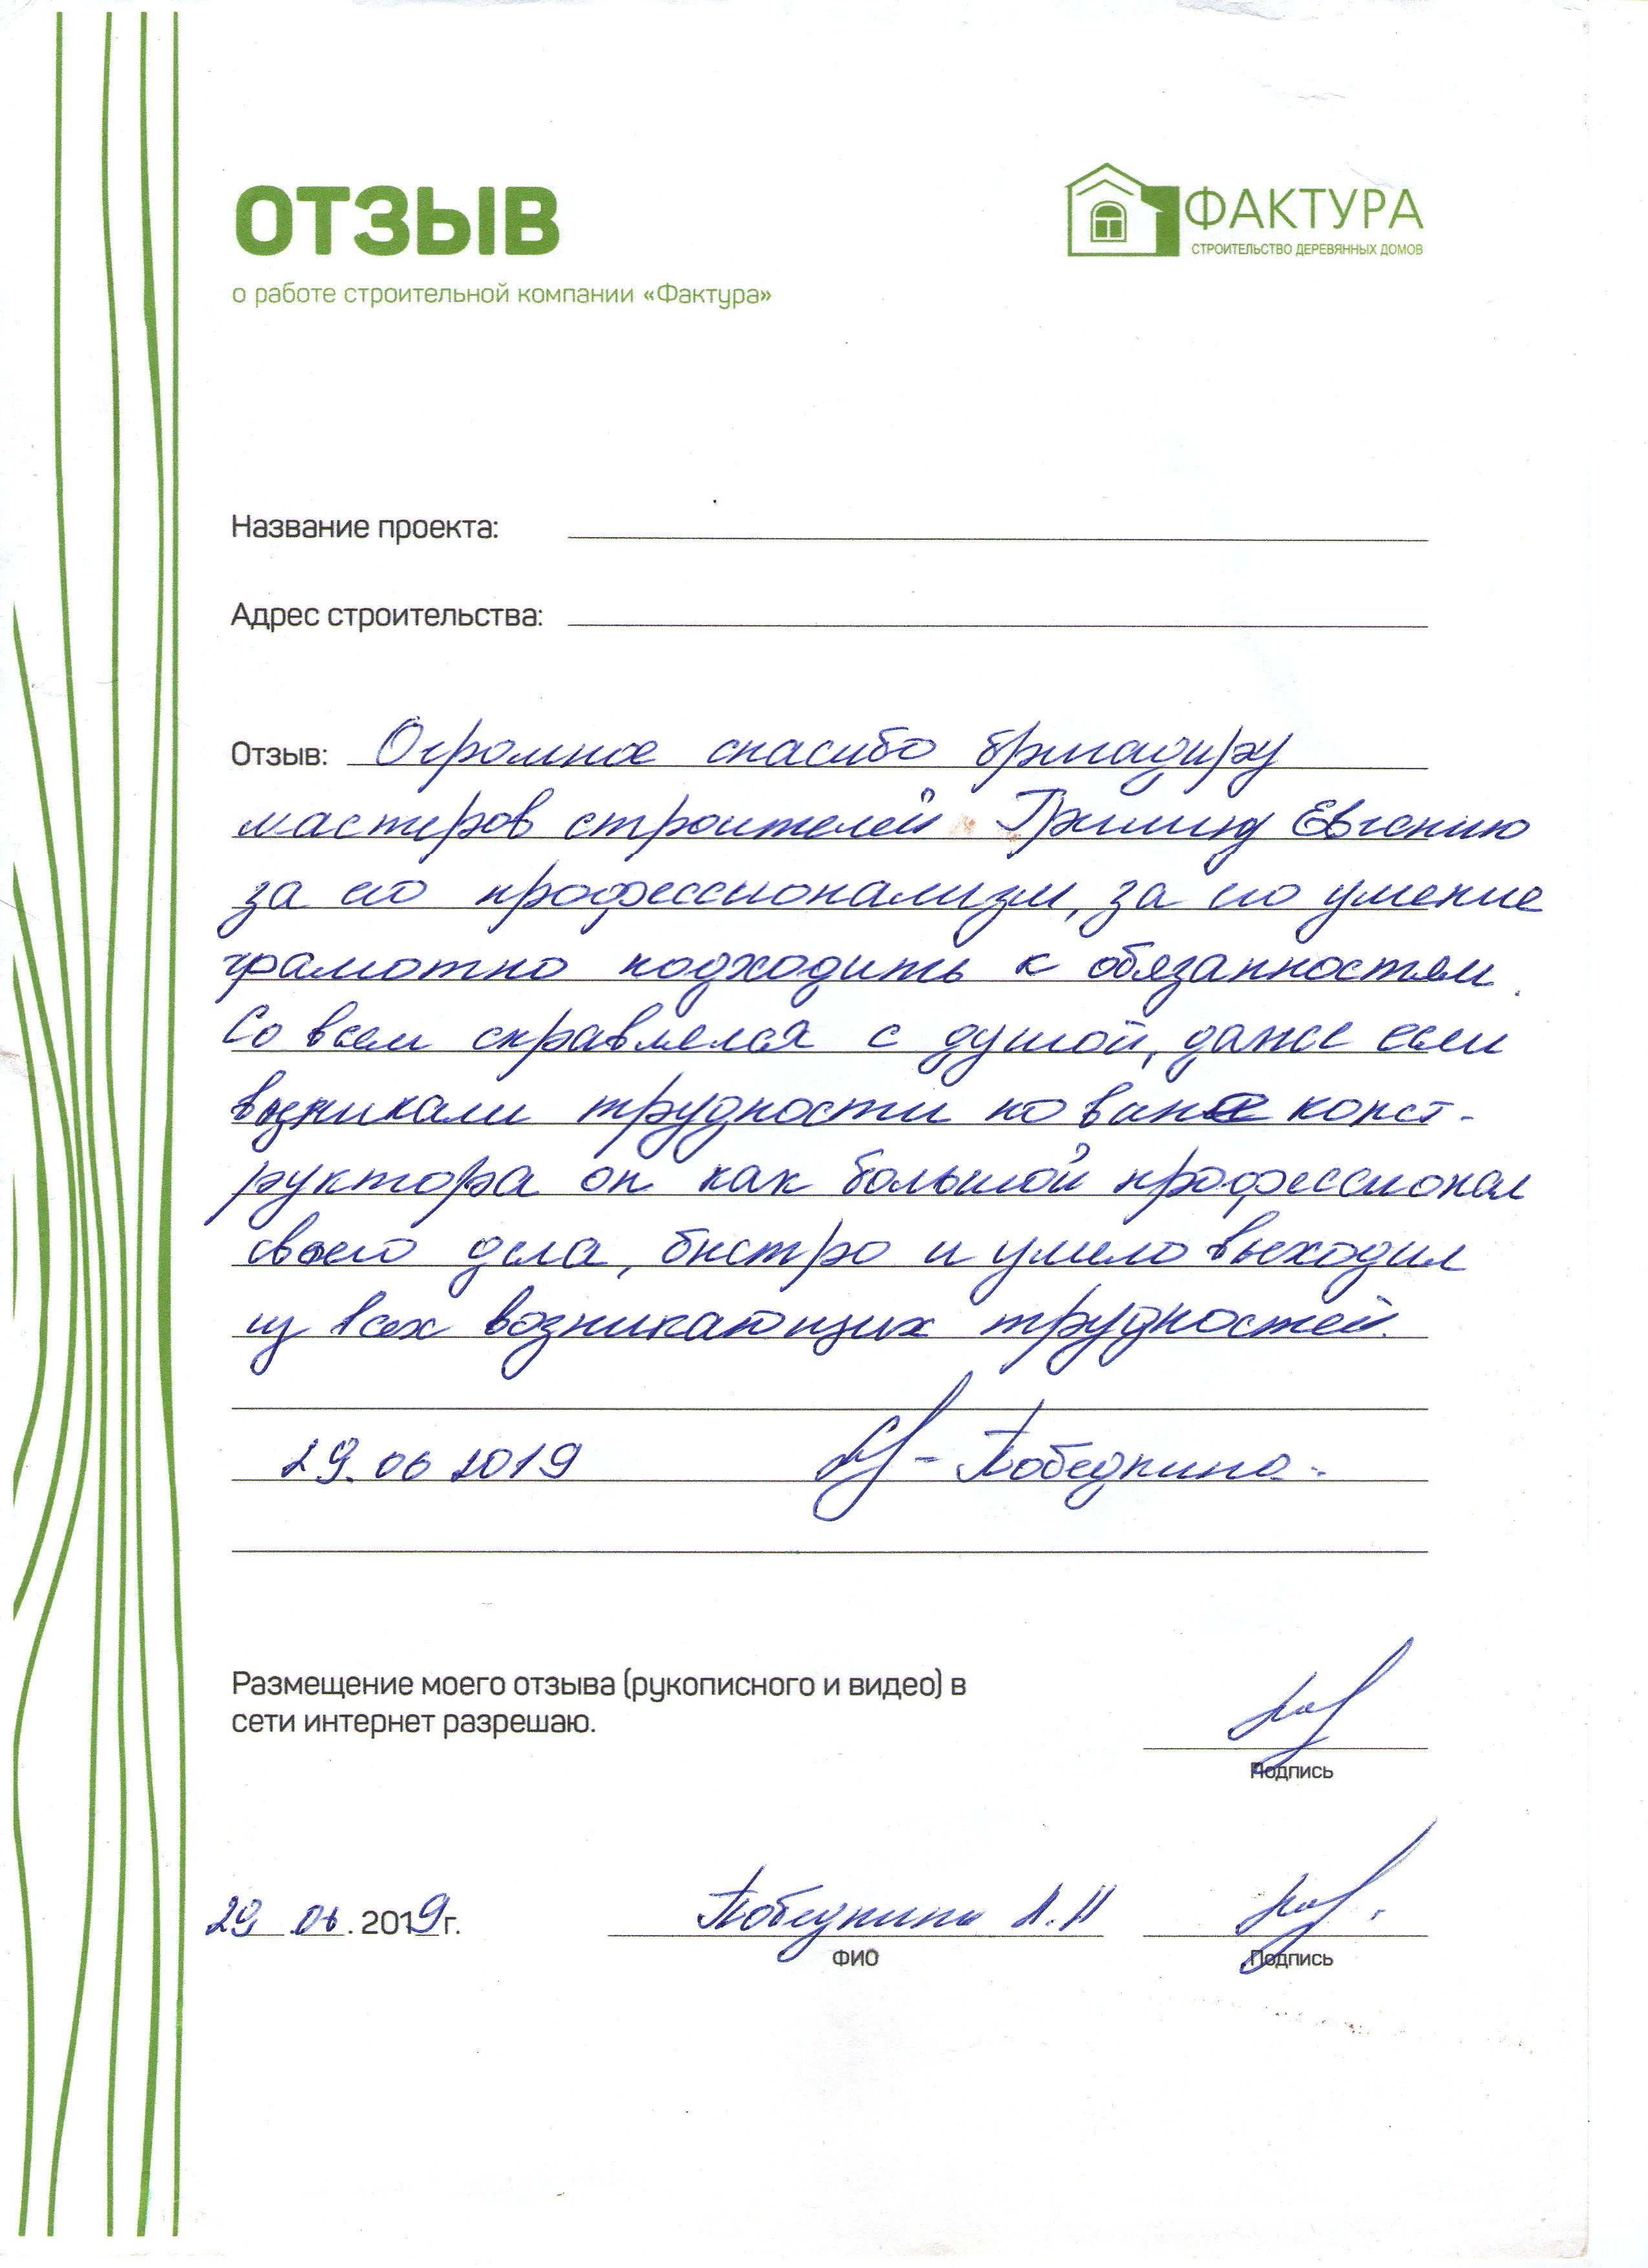 ОТЗЫВ
ФАКТУРА
СТРОИТЕЛЬСТВО ДЕРЕВЯННЫХ ДОМОВ
о работе строительной компании «Фактура»
Название проекта:
Адрес строительства:
Отзыв: Огромное спасибо бригадиру
мастеров строителей Евгению
за его профессионализм, за его умение
грамотно подходить к обязанностям.
Со всем справлялся с душой, даже если
возникали трудности по вине конст-
руктора он как большой профессионал
своего дела, быстро и умело выходил
из всех возникающих трудностей.
29.06 2019 - Победкина
Размещение моего отзыва (рукописного и видео) в
сети интернет разрешаю.
Подпись
29 .06. 2019г. Победкина А.Н
ФИО
Подпись